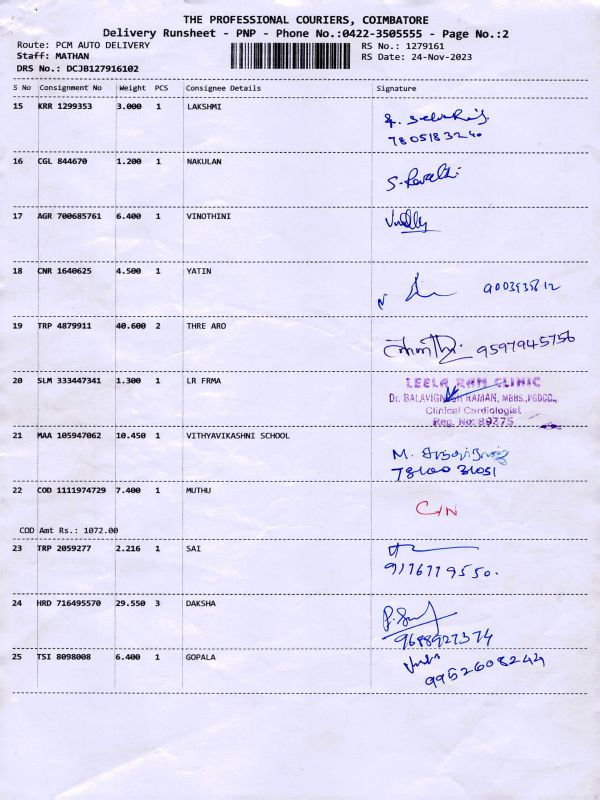 THE PROFESSIONAL COURIERS, COIMBATORE
Delivery Runsheet - PNP - Phone No.:0422-3505555 - Page No.:2
Route: PCM AUTO DELIVERY RS No.: 1279161
Staff: MATHAN RS Date: 24-Nov-2023
DRS No.: DCJB127916102
S No Consignment No Weight PCS Consignee Details Signature
15 KRR 1299353 3.000 1 LAKSHMI
7805183240
16 CGL 844670 1.200 1 NAKULAN
17 AGR 700685761 6.400 1 VINOTHINI
18 CNR 1640625 4.500 1 YATIN
19 TRP 4879911 40.600 2 THRE ARO
9597945756
20 SLM 333447341 1.300 1 LR FRMA
LEELA RAM CLINIC
Dr. RAMAN, MBBS.,PGDCC.,
Clinical Cardiologist
Reg. No: 89775
21 MAA 105947062 10.450 1 VITHYAVIKASHNI SCHOOL
M.
22 COD 1111974729 7.400 1 MUTHU
C/N
COD Amt Rs.: 1072.00
23 TRP 2059277 2.216 1 SAI
24 HRD 716495570 29.550 3 DAKSHA
9688927374
25 TSI 8098008 6.400 1 GOPALA
9952608244